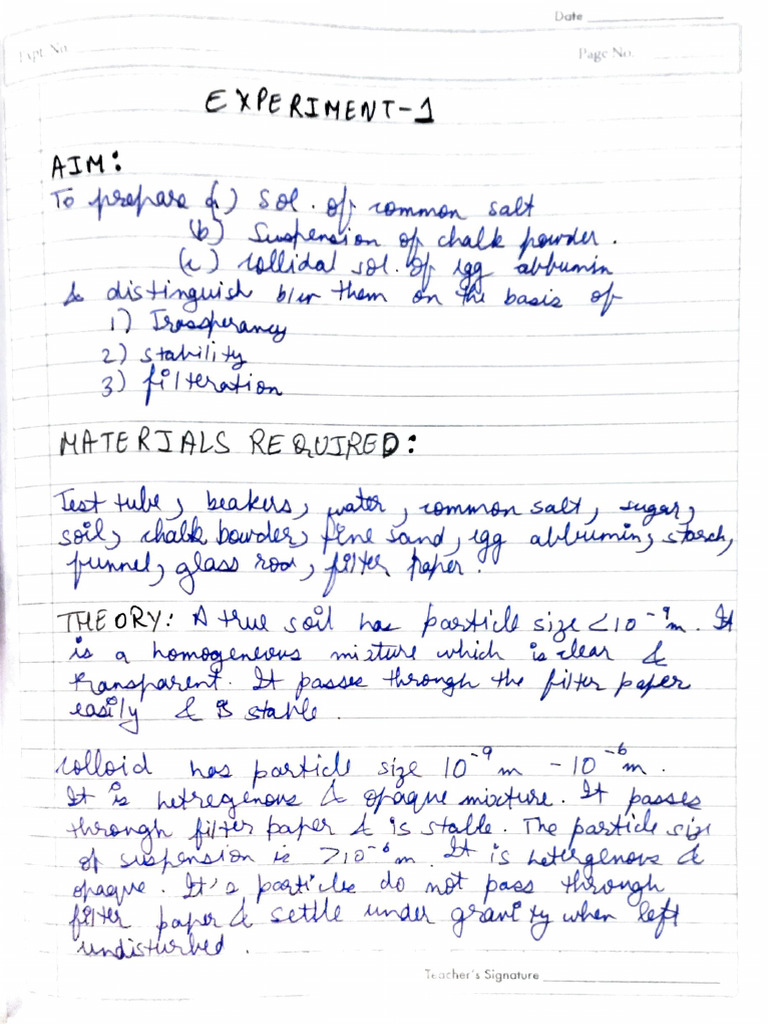 Date
Expt. No.
Page No.
EXPERIMENT-1
AIM:
To prepare a) Sol. of common salt
(b) Suspension of chalk powder.
(c) collidal sol. of egg abbumin
& distinguish b/w them on the basis of
1) Transperancy
2) stability
3) filteration
MATERIALS REQUIRED:
Test tube, beakers, water, common salt, sugar,
soil, chalk bowder, fine sand, egg abbumin, starch,
funnel, glass rod, filter paper.
THEORY: A true soil has particle size <10⁻⁹m. It
is a homogeneous mixture which is clear &
transparent. It passes through the filter paper
easily & is stable.
colloid has particle size 10⁻⁹m - 10⁻⁶m.
It is hetregenous & opaque mixture. It passes
through filter paper & is stable. The particle size
of suspension is >10⁻⁶m. It is hetergenous &
opaque. It's particles do not pass through
filter paper & settle under gravity when left
undisturbed.
Teacher's Signature